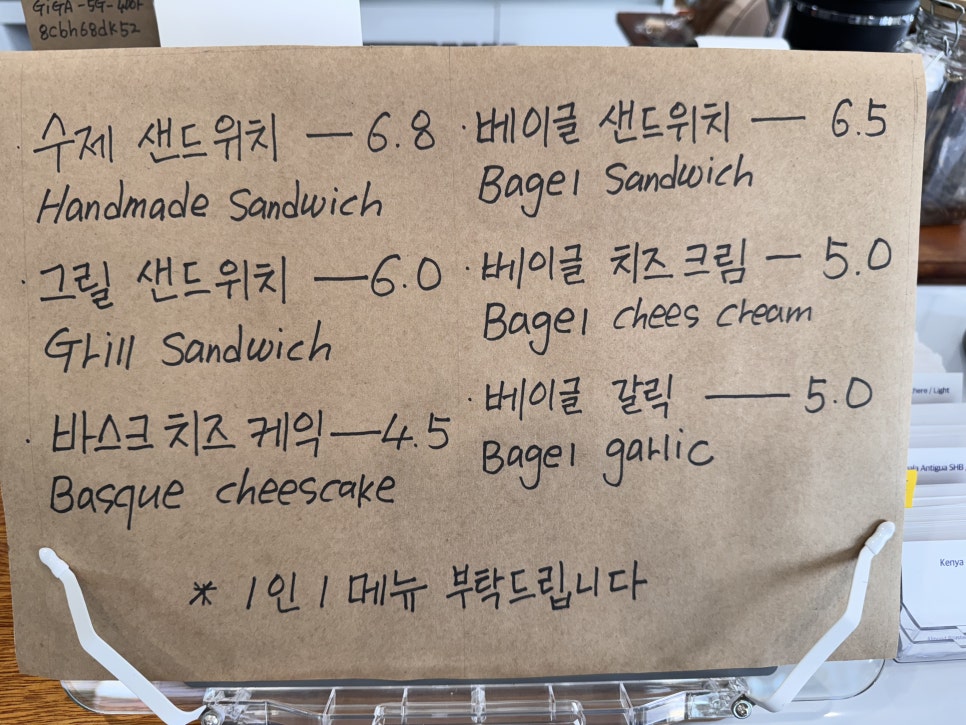 8cbh68dk52
수제 샌드위치 — 6.8
Handmade Sandwich
그릴 샌드위치 — 6.0
Grill Sandwich
바스크 치즈 케익 — 4.5
Basque cheescake
베이글 샌드위치 — 6.5
Bagel Sandwich
베이글 치즈 크림 — 5.0
Bagel chees cream
베이글 갈릭 — 5.0
Bagel garlic
* 1인 1 메뉴 부탁드립니다
/ Light
Antigua SHB
Kenya